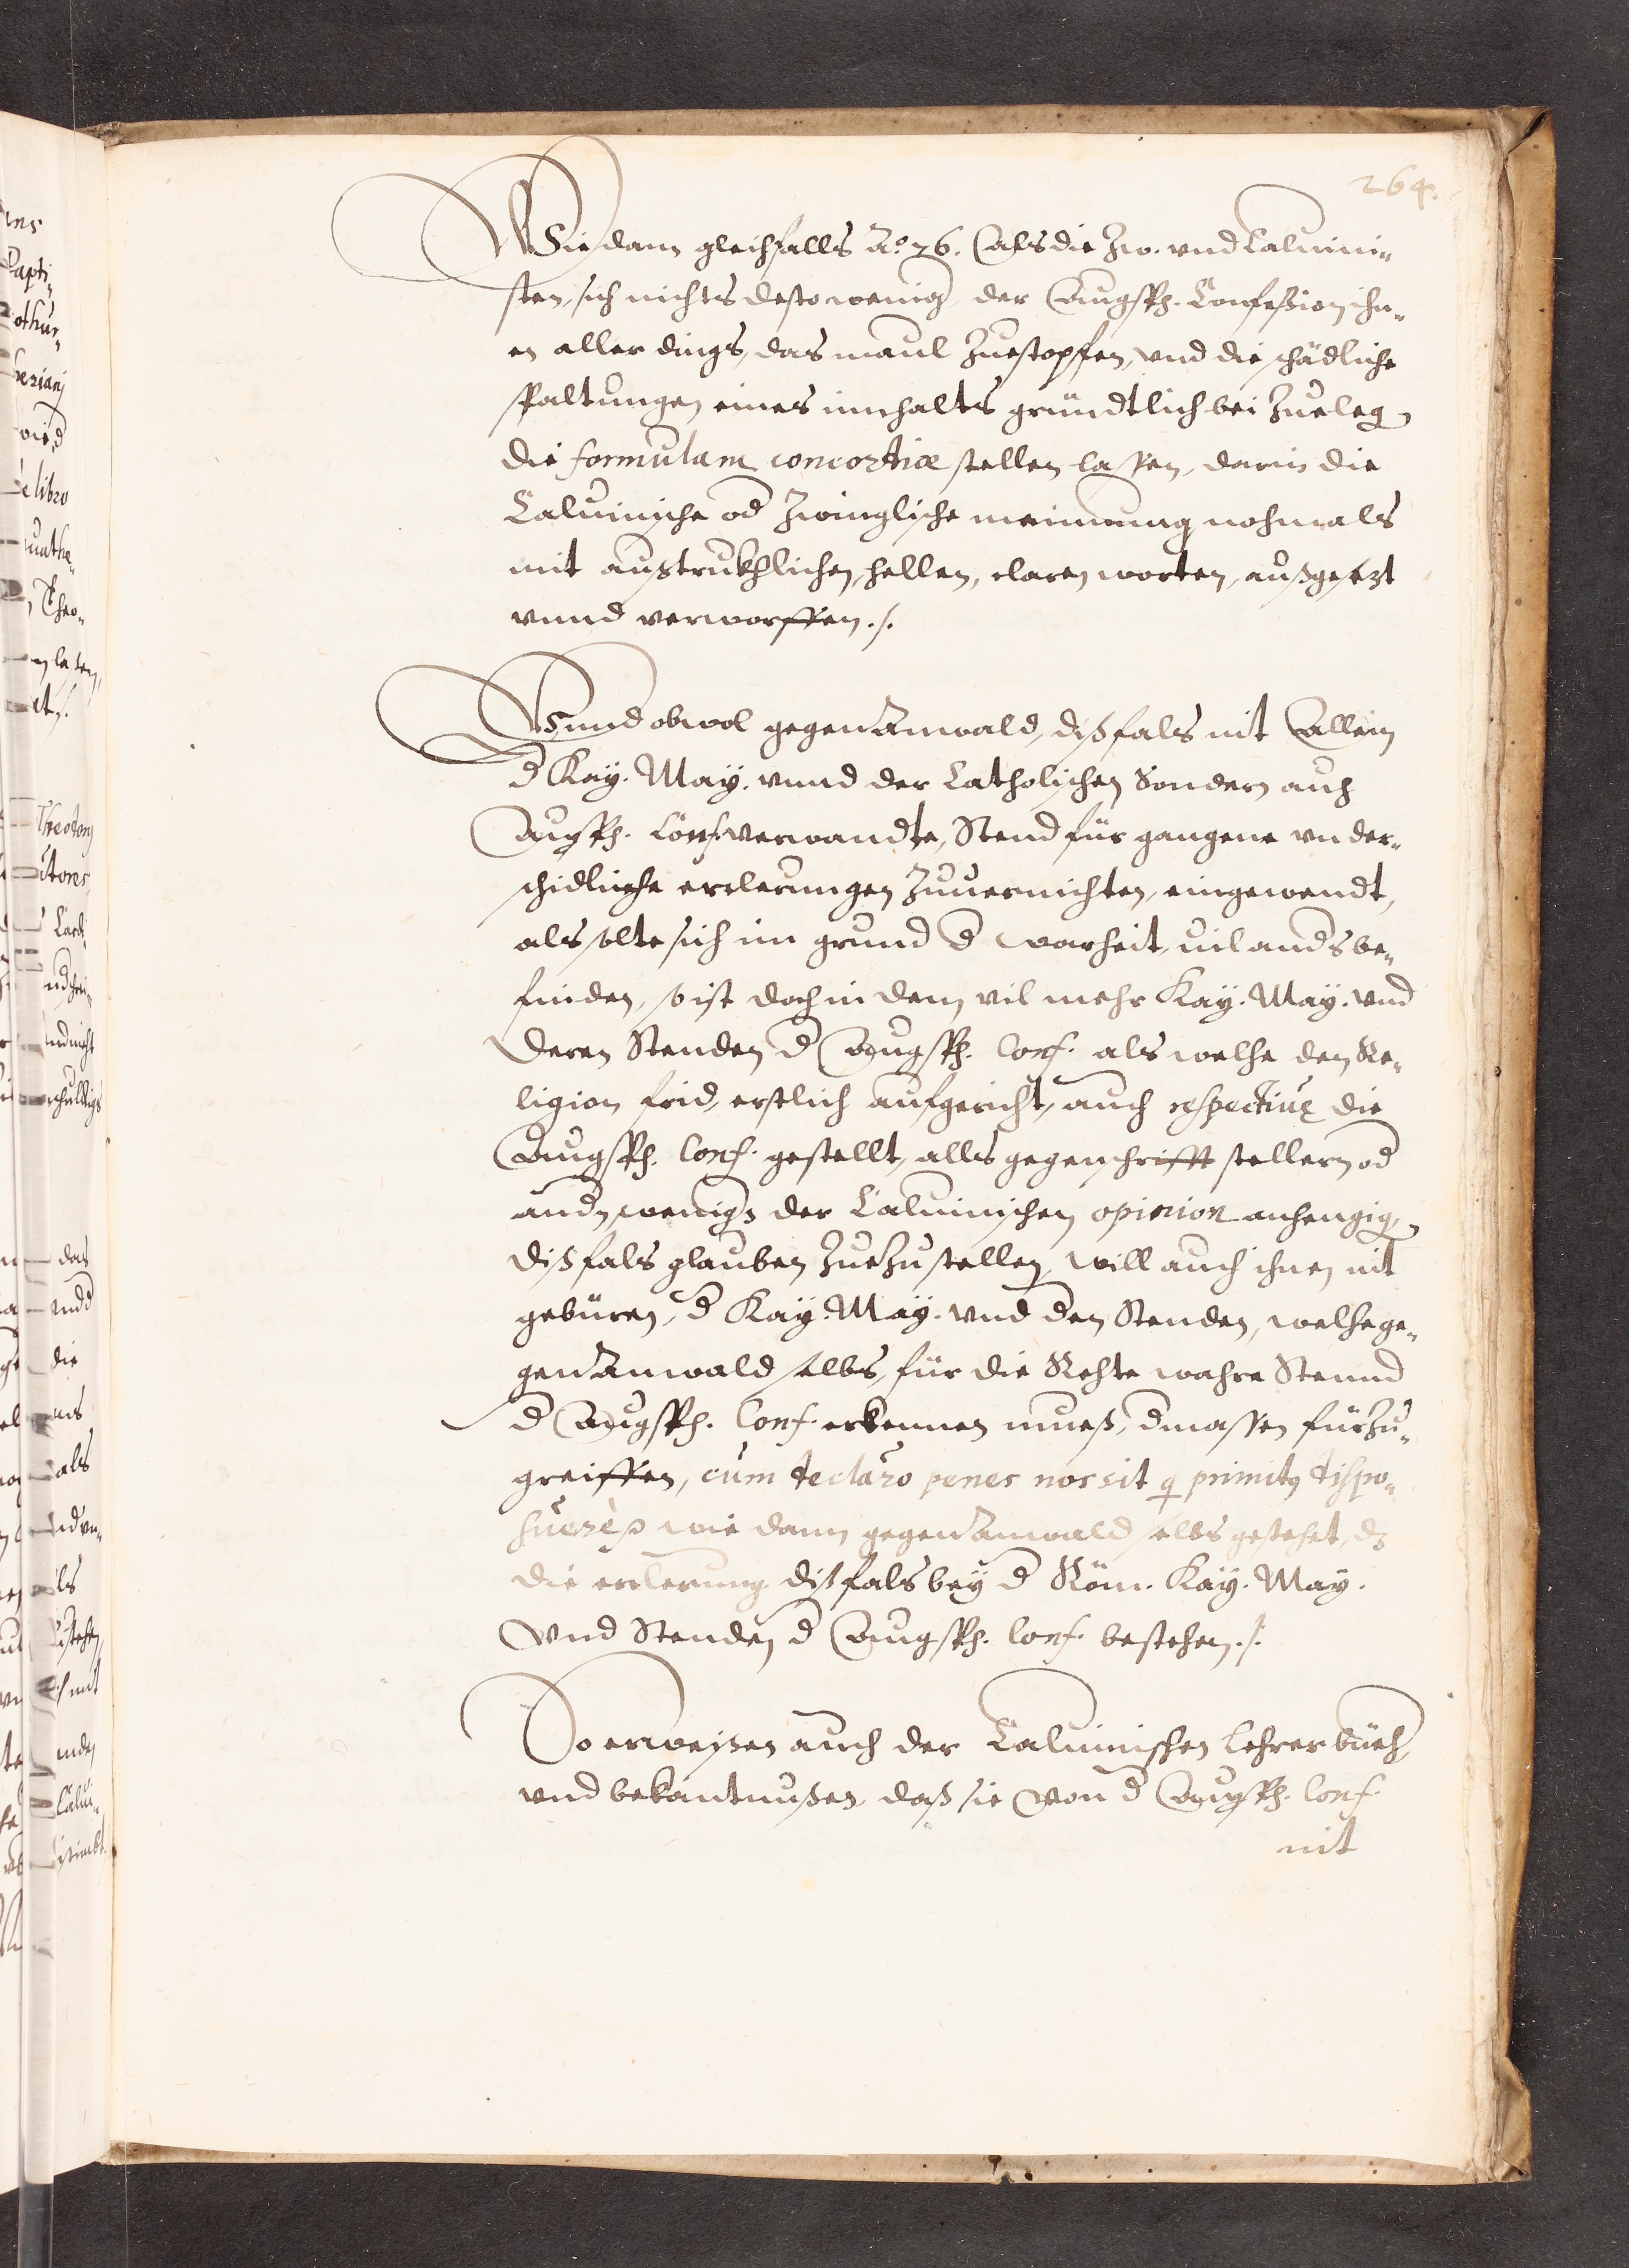 264.
Wie dann gleichfalls A.o 76. Als die Zw. vnd Caluini-
sten, sich nichts desto wenig der Augsp. Confeßion ihn-
en aller dings, das maul Zuestopfen, vnd die schädliche
spaltungen eines innhalts gründtlich bei Zueleg
die formulam concordiæ stellen lassen, darin die
Caluinische od Zwinglische mainung nochmals
mit außtrukhlichen, hellen, claren worten, außgesezt
vnnd verworffen./.
Vnnd obwol gegen Anwald, dißfals nit Allein
d Kay. May. vnnd der Catholischen Sondern auch
Augsp. Conf. verwandte, Stend für gangene vnder-
schidliche erclerungen Zuuernichten, eingewendt,
als solte sich im grund d warheit, vil anders be-
finden, so ist doch in dem vil mehr Kay. May. vnd
deren Stenden d Augsp. Conf. als welche den Re-
ligion frid, erstlich aufgericht, auch respectiue die
Augsp. Conf. gestellt, alls gegenschrifft stellern od
andn wenig der Caluinischen opinion anhengig
dißfals glauben Zuezustellen, will auch ihnen nit
gebüren, d Kay. May. vnd den Stenden, welche ge-
gen Anwald selbs, für die Rechte wahre Stennd
d Augsp. Conf. erkennen mueß, dmassen fürzu-
greiffen, cum declaro penes nos sit q primitq dispo-
suere wie dann gegen Anwald selbs gestehet, dz
die erclerung dißfals bey d Röm. Kay. May.
Vnd Stenden d Augsp. Conf. bestehen./.
So erweisen auch der Caluinischen Lehrer büech,
vnd bekantnußen, daß sie Von d Augsp. Conf.
nit